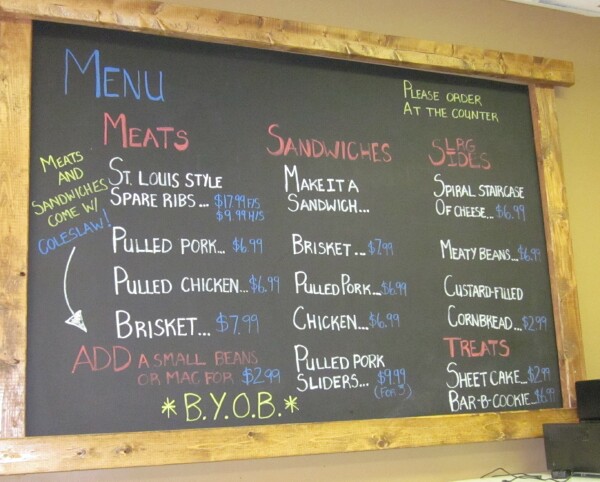 MENU
PLEASE ORDER
AT THE COUNTER
MEATS
AND
SANDWICHES
COME W/
COLESLAW!
MEATS
ST. LOUIS STYLE
SPARE RIBS... $17.99 F/S
$9.99 H/S
PULLED PORK... $6.99
PULLED CHICKEN... $6.99
BRISKET... $7.99
ADD A SMALL BEANS
OR MAC FOR $2.99
*B.Y.O.B.*
SANDWICHES
MAKE IT A
SANDWICH...
BRISKET... $7.99
PULLED PORK... $6.99
CHICKEN... $6.99
PULLED PORK
SLIDERS... $9.99
(FOR 3)
LRG
SIDES
SPIRAL STAIRCASE
OF CHEESE... $6.99
MEATY BEANS... $6.99
CUSTARD-FILLED
CORNBREAD... $2.99
TREATS
SHEET CAKE... $2.99
BAR-B-COOKIE... $6.99